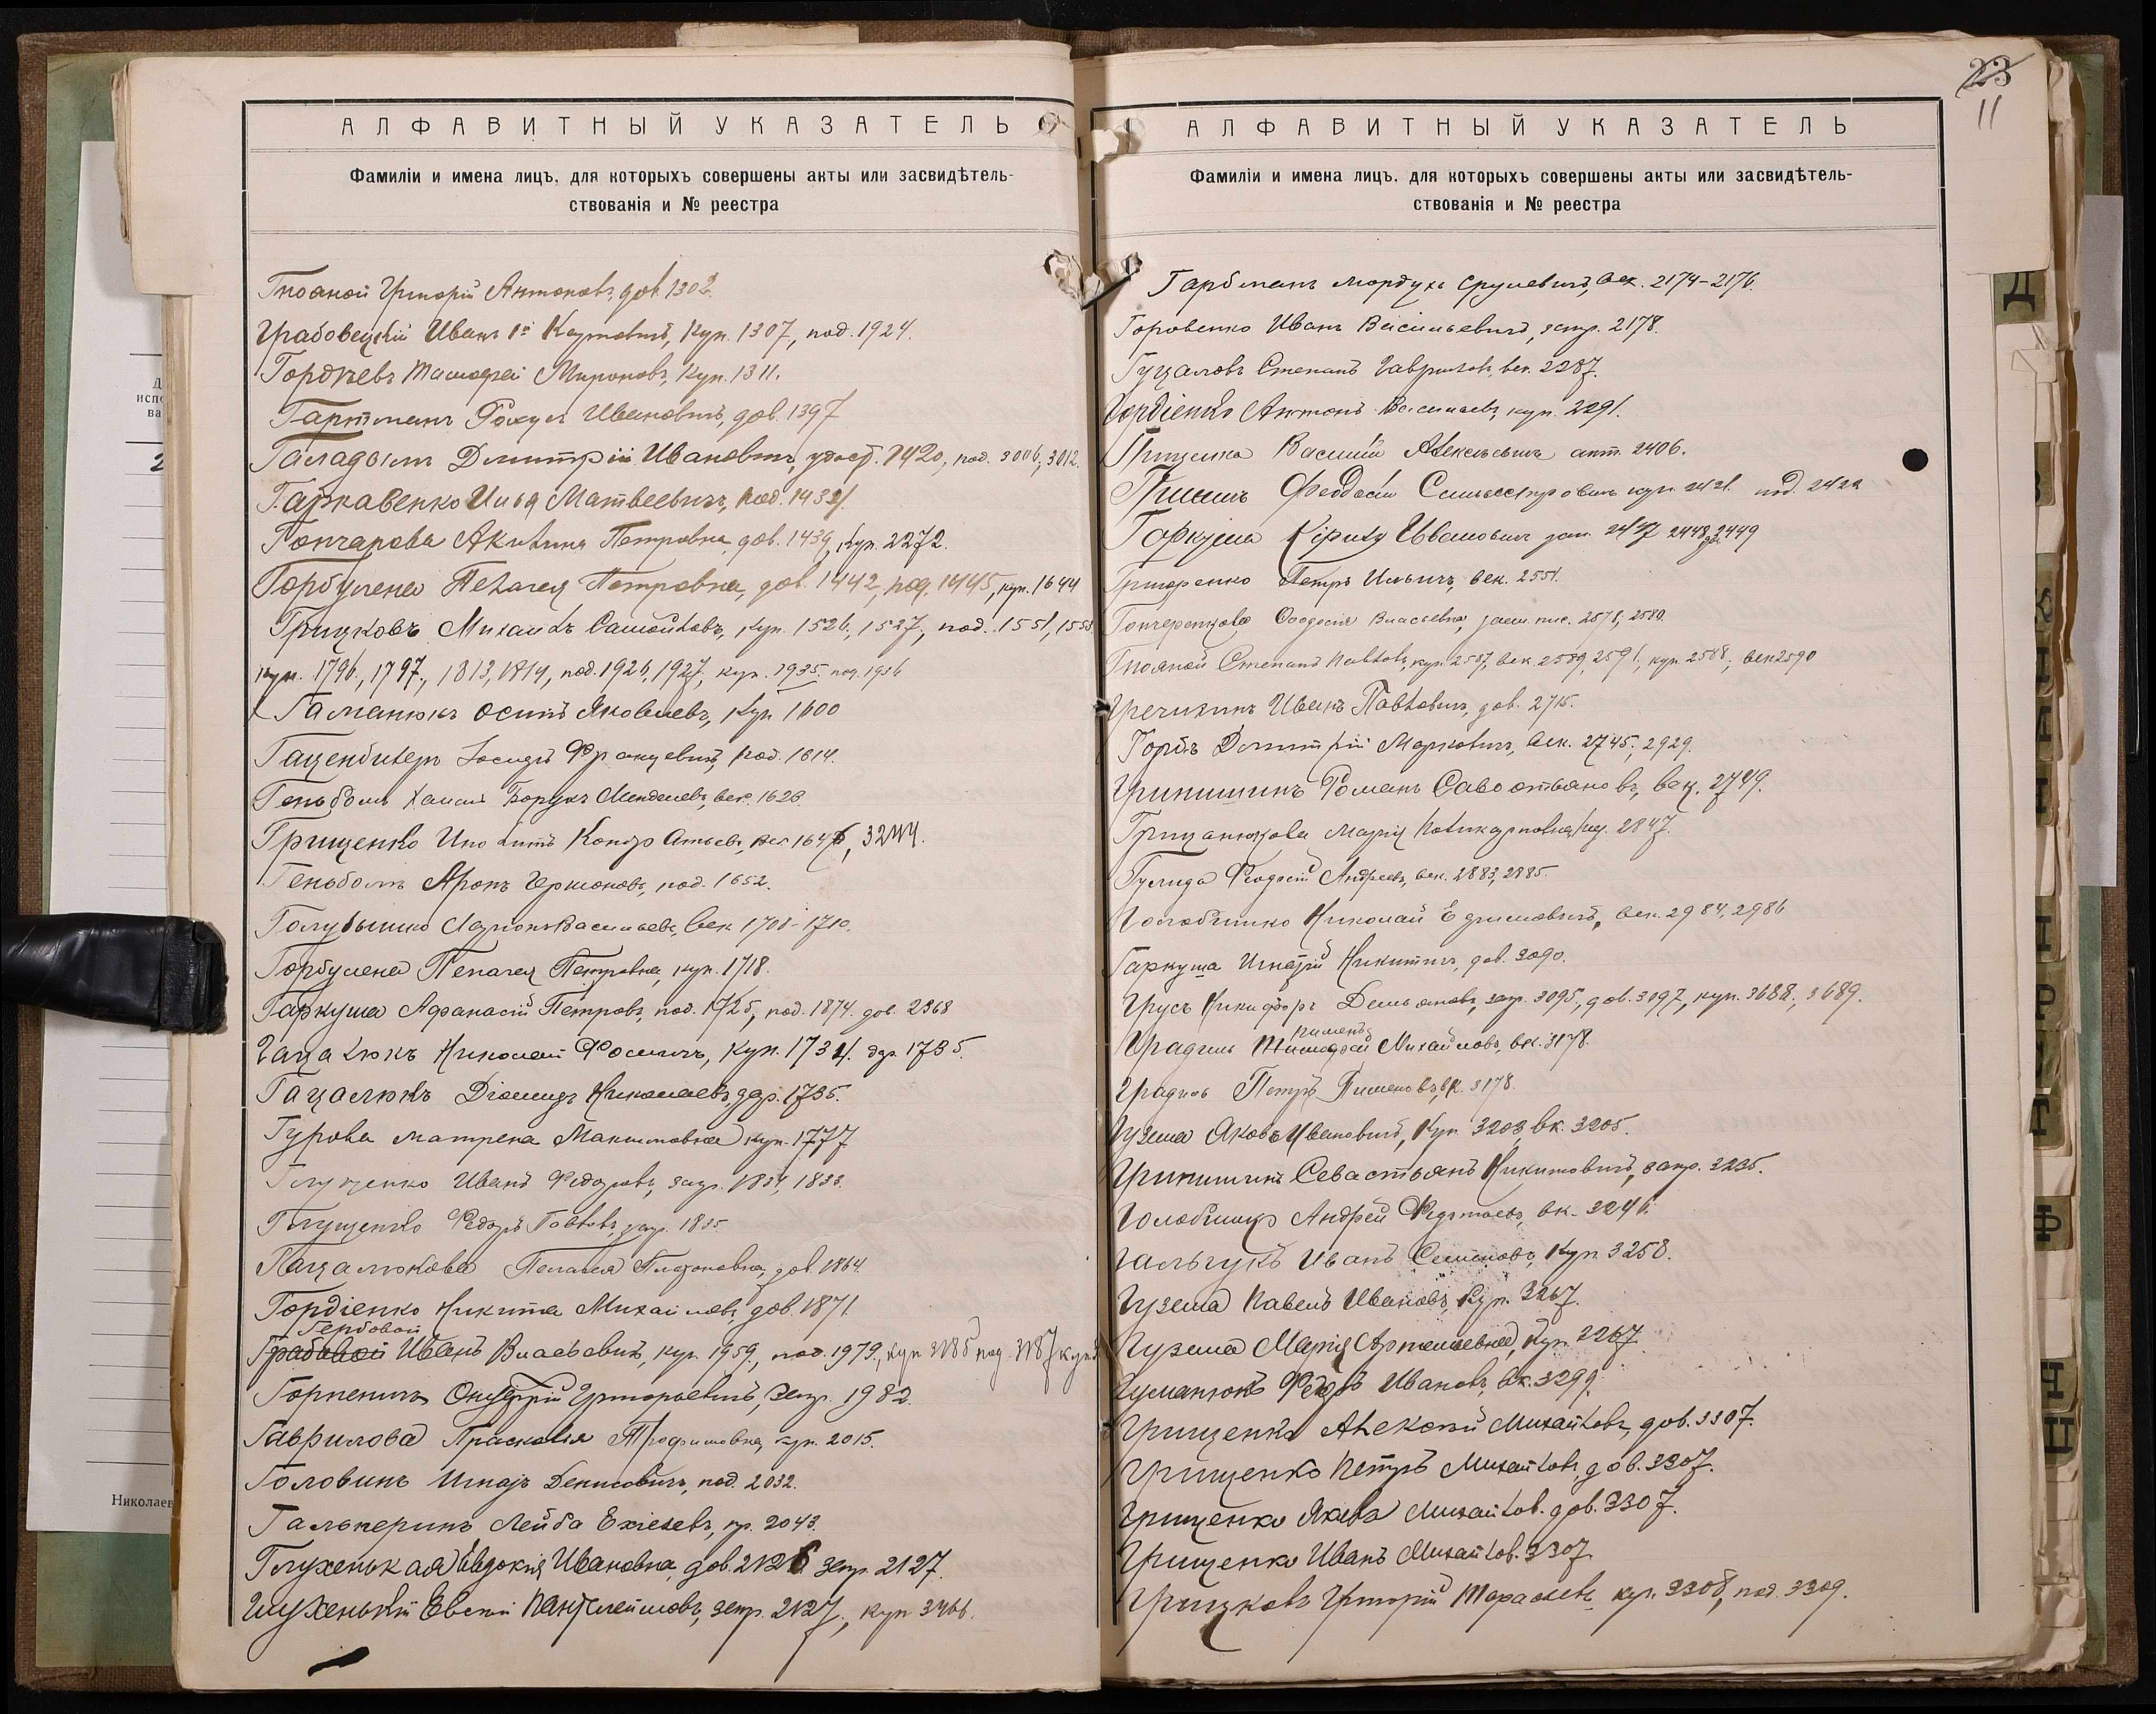 АЛФАВИТНЫЙ УКАЗАТЕЛЬ
Фамиліи и имена лицъ, для которыхъ совершены акты или засвидѣтель-
ствованія и № реестра
Гнояной Григорій Антоновъ, дов. 1302.
Грабовецкій Иванъ куп. 1307, под. 1924.
Гордѣевъ Тимофей Мироновъ, куп. 1311.
Гартманъ Ивановичъ, дов. 1397
Дмитрій Ивановичъ, 1420, под. 3006, 3012.
Гаркавенко Илья Матвеевичъ, под.
Гончарова Акилина Петровна, дов. 1439, куп. 2272.
Горбулена Пелагея Петровна, дов. 1442, под. 1445, куп. 1644
Грицковъ Михаилъ Самойловъ, куп. 1526, 1527, под. 1551,
куп. 1796, 1797, 1813, 1814, под. 1926, 1927, куп. 1935. под. 1936
Гаманюкъ Осипъ Яковлевъ, куп 1600
Гаценбилеръ Іосифъ Францевичъ, под. 1614.
Геньбомъ Хаимъ Борухъ Менделевъ, век. 1628.
Грищенко Иполитъ Кондратьевъ, век. 3244.
Геньбомъ Аронъ Гершоновъ, под. 1652.
Ларіонъ Васильевъ, век 1708-1710.
Горбулена Пелагея Петровна, куп. 1718.
Гаркуша Афанасій Петровъ, под. 1725, под. 1874. дов. 2368
Гацалюкъ Николай Фомичъ, куп. 1734. дар. 1735.
Гацалюкъ Діомидъ Николаевъ, дар. 1735.
Гурова Матрена Максимовна куп. 1777
Глущенко Иванъ Федоровъ, запр. 1834, 1833.
Глущенко Федоръ Павловъ, запр. 1835
Гацалюкова Пелагея Платоновна, дов. 1864.
Гордіенко Никита Михайловъ, дов. 1871.
Гербовой
Грабовой Иванъ Власьевичъ, куп. 1959, под. 1979, куп 3185 под. 3187
Горпеничъ Онуфрій Григорьевичъ, запр. 1982.
Гаврилова Прасковія Трофимовна, куп. 2015.
Головинъ Игнатъ Денисовичъ, под. 2032.
Гальперинъ Лейба Ехіелевъ, пр. 2043.
Глухенькая Евдокія Ивановна, дов. 2126 запр. 2127.
Глухенькій Евсей Пантелеймовъ, запр. 2127, куп 3466.
23
11
АЛФАВИТНЫЙ УКАЗАТЕЛЬ
Фамиліи и имена лицъ, для которыхъ совершены акты или засвидѣтель-
ствованія и № реестра
Гарбманъ Мордухъ Срулевичъ, век. 2174-2176.
Горовенко Иванъ Васильевичъ, запр. 2178.
Гуцаловъ Степанъ Гавриловъ, век. 2287.
Гордіенко Антонъ Васильевъ, куп. 2291.
Грицина Василій Алексѣевичъ акт. 2406.
Феодосій Сильвестровичъ куп. 2421. под. 2422
Гаркуша Кирилъ Ивановичъ 2447 2448, 2449
Григоренко Петръ Ильичъ, век. 2551.
Феодосія Власьевна, заяв. пис. 2578, 2580.
Гнояной Степанъ Павловъ, куп. 2587, век. 2589, 2591, куп. 2588, век 2590
Гречихинъ Иванъ Павловичъ, дов. 2715.
Горбъ Дмитрій Марковичъ, век. 2745, 2929.
Грипишинъ Романъ Савостьяновъ, век. 2749.
Грицанюкова Марія Поликарповна, 2847.
Гулида Феодосій Андреевъ, век. 2883, 2885.
Голобчинко Николай Ефимовичъ, век. 2984, 2986
Гаркуша Игнатій Никитичъ, дов. 3090.
Грусъ Никифоръ Демьяновъ, запр. 3095, дов. 3097, куп. 3688, 3689.
Пименъ
Градиль Тимофей Михайловъ, вк. 3178.
Градиль Петръ Пименовъ, вк. 3178.
Гузема Яковъ Ивановичъ, куп. 3203, вк. 3205.
Грипишинъ Севастьянъ Никитовичъ, запр. 3235.
Голобчинко Андрей вк. 3246.
Гальчукъ Иванъ Семеновъ, куп 3258.
Гузема Павелъ Ивановъ, куп. 3267.
Гузема Марія Артемьевна, куп. 3267
Гуманюкъ Федоръ Ивановъ, вк. 3299.
Грищенко Алексѣй Михайловъ, дов. 3307.
Грищенко Петръ Михайловъ, дов. 3307.
Грищенко Яковъ Михайлов. дов. 3307.
Грищенко Иванъ Михайлов. 3307.
Грицковъ Григорій Тарасьевъ, куп. 3308, под. 3309.
Николаев